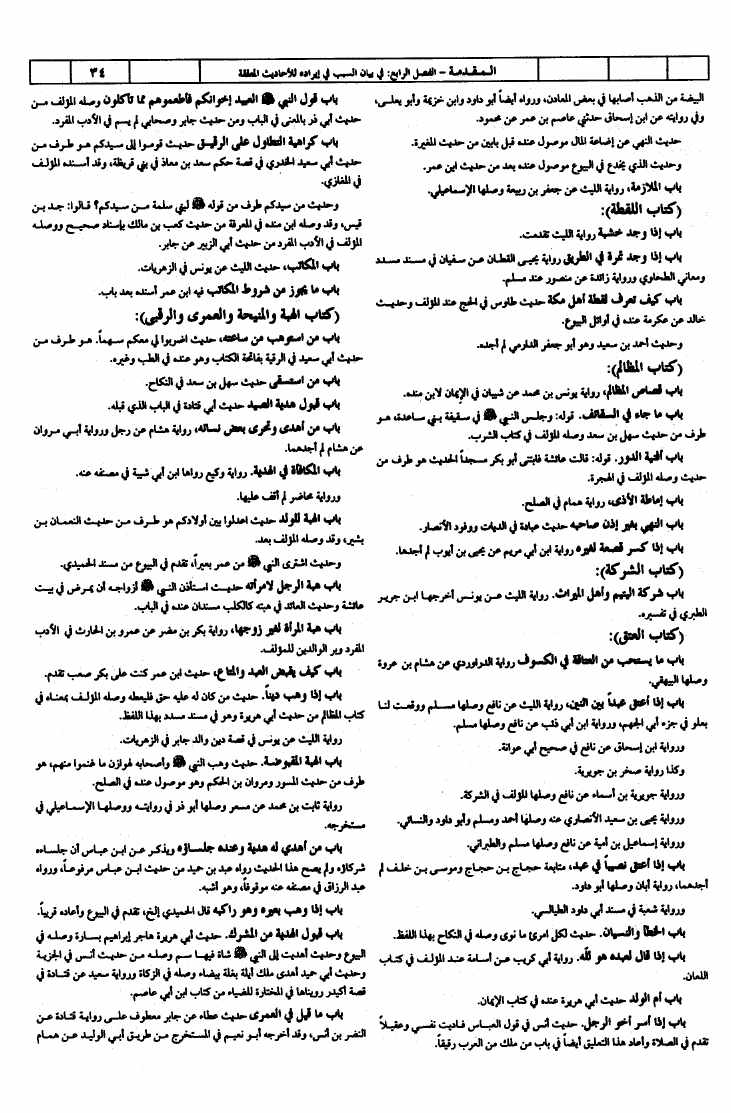 المقدمة - الفصل الرابع: في بيان السبب في إيراده للأحاديث المعلقة
٣٤
البيضة من الذهب أصابها في بعض المعادن، ورواه أيضاً أبو داود وابن خزيمة وأبو يعلى،
وفي روايته عن ابن إسحاق حدثني عاصم بن عمر عن محمود.
حديث النهي عن إضاعة المال موصول عنده قبل بابين من حديث المغيرة.
وحديث الذي يخدع في البيوع موصول عنده بعد من حديث ابن عمر.
باب الملازمة، رواية الليث عن جعفر بن ربيعة وصلها الإسماعيلي.
(كتاب اللقطة):
باب إذا وجد خشبة رواية الليث تقدمت.
باب إذا وجد تمرة في الطريق رواية يحيى القطان عن سفيان في مسند مسدد
ومعاني الطحاوي ورواية زائدة عن منصور عند مسلم.
باب كيف تعرف لقطة أهل مكة حديث طاوس في الحج عند المؤلف وحديث
خالد عن عكرمة عنده في أوائل البيوع.
وحديث أحمد بن سعيد وهو أبو جعفر الدارمي لم أجده.
(كتاب المظالم):
باب قصاص المظالم، رواية يونس بن محمد عن شيبان في الإيمان لابن منده.
باب ما جاء في السقائف. قوله: وجلس النبي ﷺ في سقيفة بني ساعدة، هو
طرف من حديث سهل بن سعد وصله المؤلف في كتاب الشرب.
باب أفنية الدور. قوله: قالت عائشة فابتنى أبو بكر مسجداً الحديث هو طرف من
حديث وصله المؤلف في الهجرة.
باب إماطة الأذى، رواية همام في الصلح.
باب النهي بغير إذن صاحبه حديث عبادة في الديات ووفود الأنصار.
باب إذا كسر قصعة لغيره رواية ابن أبي مريم عن يحيى بن أيوب لم أجدها.
(كتاب الشركة):
باب شركة اليتيم وأهل الميراث. رواية الليث عن يونس أخرجها ابن جرير
الطبري في تفسيره.
(كتاب العتق):
باب ما يستحب من العتاقة في الكسوف رواية الدراوردي عن هشام بن عروة
وصلها البيهقي.
باب إذا أعتق عبداً بين اثنين، رواية الليث عن نافع وصلها مسلم ووقعت لنا
بعلو في جزء أبي الجهم، ورواية ابن أبي ذئب عن نافع وصلها مسلم.
ورواية ابن إسحاق عن نافع في صحيح أبي عوانة.
وكذا رواية صخر بن جويرية.
ورواية جويرية بن أسماء عن نافع وصلها المؤلف في الشركة.
ورواية يحيى بن سعيد الأنصاري عنه وصلها أحمد ومسلم وأبو داود والنسائي.
ورواية إسماعيل بن أمية عن نافع وصلها مسلم والطبراني.
باب إذا أعتق نصيباً في عبد، متابعة حجاج بن حجاج وموسى بن خلف لم
أجدهما، رواية أبان وصلها أبو داود.
ورواية شعبة في مسند أبي داود الطيالسي.
باب الخطأ والنسيان. حديث لكل امرئ ما نوى وصله في النكاح بهذا اللفظ.
باب إذا قال لعبده هو لله. رواية أبي كريب عن أسامة عند المؤلف في كتاب
اللعان.
باب أم الولد حديث أبي هريرة عنده في كتاب الإيمان.
باب إذا أسر أخو الرجل. حديث أنس في قول العباس فاديت نفسي وعقيلاً
تقدم في الصلاة وأعاد هذا التعليق أيضاً في باب من ملك من العرب رقيقاً.
باب قول النبي ﷺ العبيد إخوانكم فأطعموهم مما تأكلون وصله المؤلف من
حديث أبي ذر بالمعنى في الباب ومن حديث جابر وصحابي لم يسم في الأدب المفرد.
باب كراهية التطاول على الرقيق حديث قوموا إلى سيدكم هو طرف من
حديث أبي سعيد الخدري في قصة حكم سعد بن معاذ في بني قريظة، وقد أسنده المؤلف
في المغازي.
وحديث من سيدكم طرف من قوله ﷺ لبني سلمة من سيدكم؟ قالوا: جد بن
قيس، وقد وصله ابن منده في المعرفة من حديث كعب بن مالك بإسناد صحيح ووصله
المؤلف في الأدب المفرد من حديث أبي الزبير عن جابر.
باب المكاتب، حديث الليث عن يونس في الزهريات.
باب ما يجوز عن شروط المكاتب فيه ابن عمر أسنده بعد باب.
(كتاب الهبة والمنيحة والعمرى والرقبى):
باب من استوهب من صاحبه، حديث اضربوا لي معكم سهماً. هو طرف من
حديث أبي سعيد في الرقية بفاتحة الكتاب وهو عنده في الطب وغيره.
باب من استسقى حديث سهل بن سعد في النكاح.
باب قبول هدية الصيد حديث أبي قتادة في الباب الذي قبله.
باب من أهدى وتحرى بعض نسائه، رواية هشام عن رجل ورواية أبي مروان
عن هشام لم أجدهما.
باب المكافأة في الهدية. رواية وكيع رواها ابن أبي شيبة في مصنفه عنه.
ورواية محاضر لم أقف عليها.
باب الهبة للولد حديث اعدلوا بين أولادكم هو طرف من حديث النعمان بن
بشير، وقد وصله المؤلف بعد.
وحديث اشترى النبي ﷺ من عمر بعيراً، تقدم في البيوع من مسند الحميدي.
باب هبة الرجل لامرأته حديث استأذن النبي ﷺ أزواجه أن يمرض في بيت
عائشة وحديث العائد في هبته كالكلب مسندان عنده في الباب.
باب هبة المرأة لغير زوجها، رواية بكر بن مضر عن عمرو بن الحارث في الأدب
المفرد وبر الوالدين للمؤلف.
باب كيف يقبض العبد والمتاع، حديث ابن عمر كنت على بكر صعب تقدم.
باب إذا وهب ديناً. حديث من كان له عليه حق فليعطه وصله المؤلف بمعناه في
كتاب المظالم من حديث أبي هريرة وهو في مسند مسدد بهذا اللفظ.
رواية الليث عن يونس في قصة دين والد جابر في الزهريات.
باب الهبة المقبوضة. حديث وهب النبي ﷺ وأصحابه لهوازن ما غنموا منهم، هو
طرف من حديث المسور ومروان بن الحكم وهو موصول عنده في الصلح.
رواية ثابت بن محمد عن مسعر وصلها أبو ذر في روايته ووصلها الإسماعيلي في
مستخرجه.
باب من أهدي له هدية وعنده جلساؤه ويذكر عن ابن عباس أن جلساءه
شركاؤه ولم يصح هذا الحديث رواه عبد بن حميد من حديث ابن عباس مرفوعاً، ورواه
عبد الرزاق في مصنفه عنه موقوفاً، وهو أشبه.
باب إذا وهب بعيره وهو راكبه قال الحميدي إلخ، تقدم في البيوع وأعاده قريباً.
باب قبول الهدية من المشرك. حديث أبي هريرة هاجر إبراهيم بسارة وصله في
البيوع وحديث أهديت إلى النبي ﷺ شاة فيها سم وصله من حديث أنس في الجزية
وحديث أبي حميد أهدى ملك أيلة بغلة بيضاء وصله في الزكاة ورواية سعيد عن قتادة في
قصة أكيدر رويناها في المختارة للضياء من كتاب ابن أبي عاصم.
باب ما قيل في العمرى حديث عطاء عن جابر معطوف على رواية قتادة عن
النضر بن أنس، وقد أخرجه أبو نعيم في المستخرج من طريق أبي الوليد عن همام